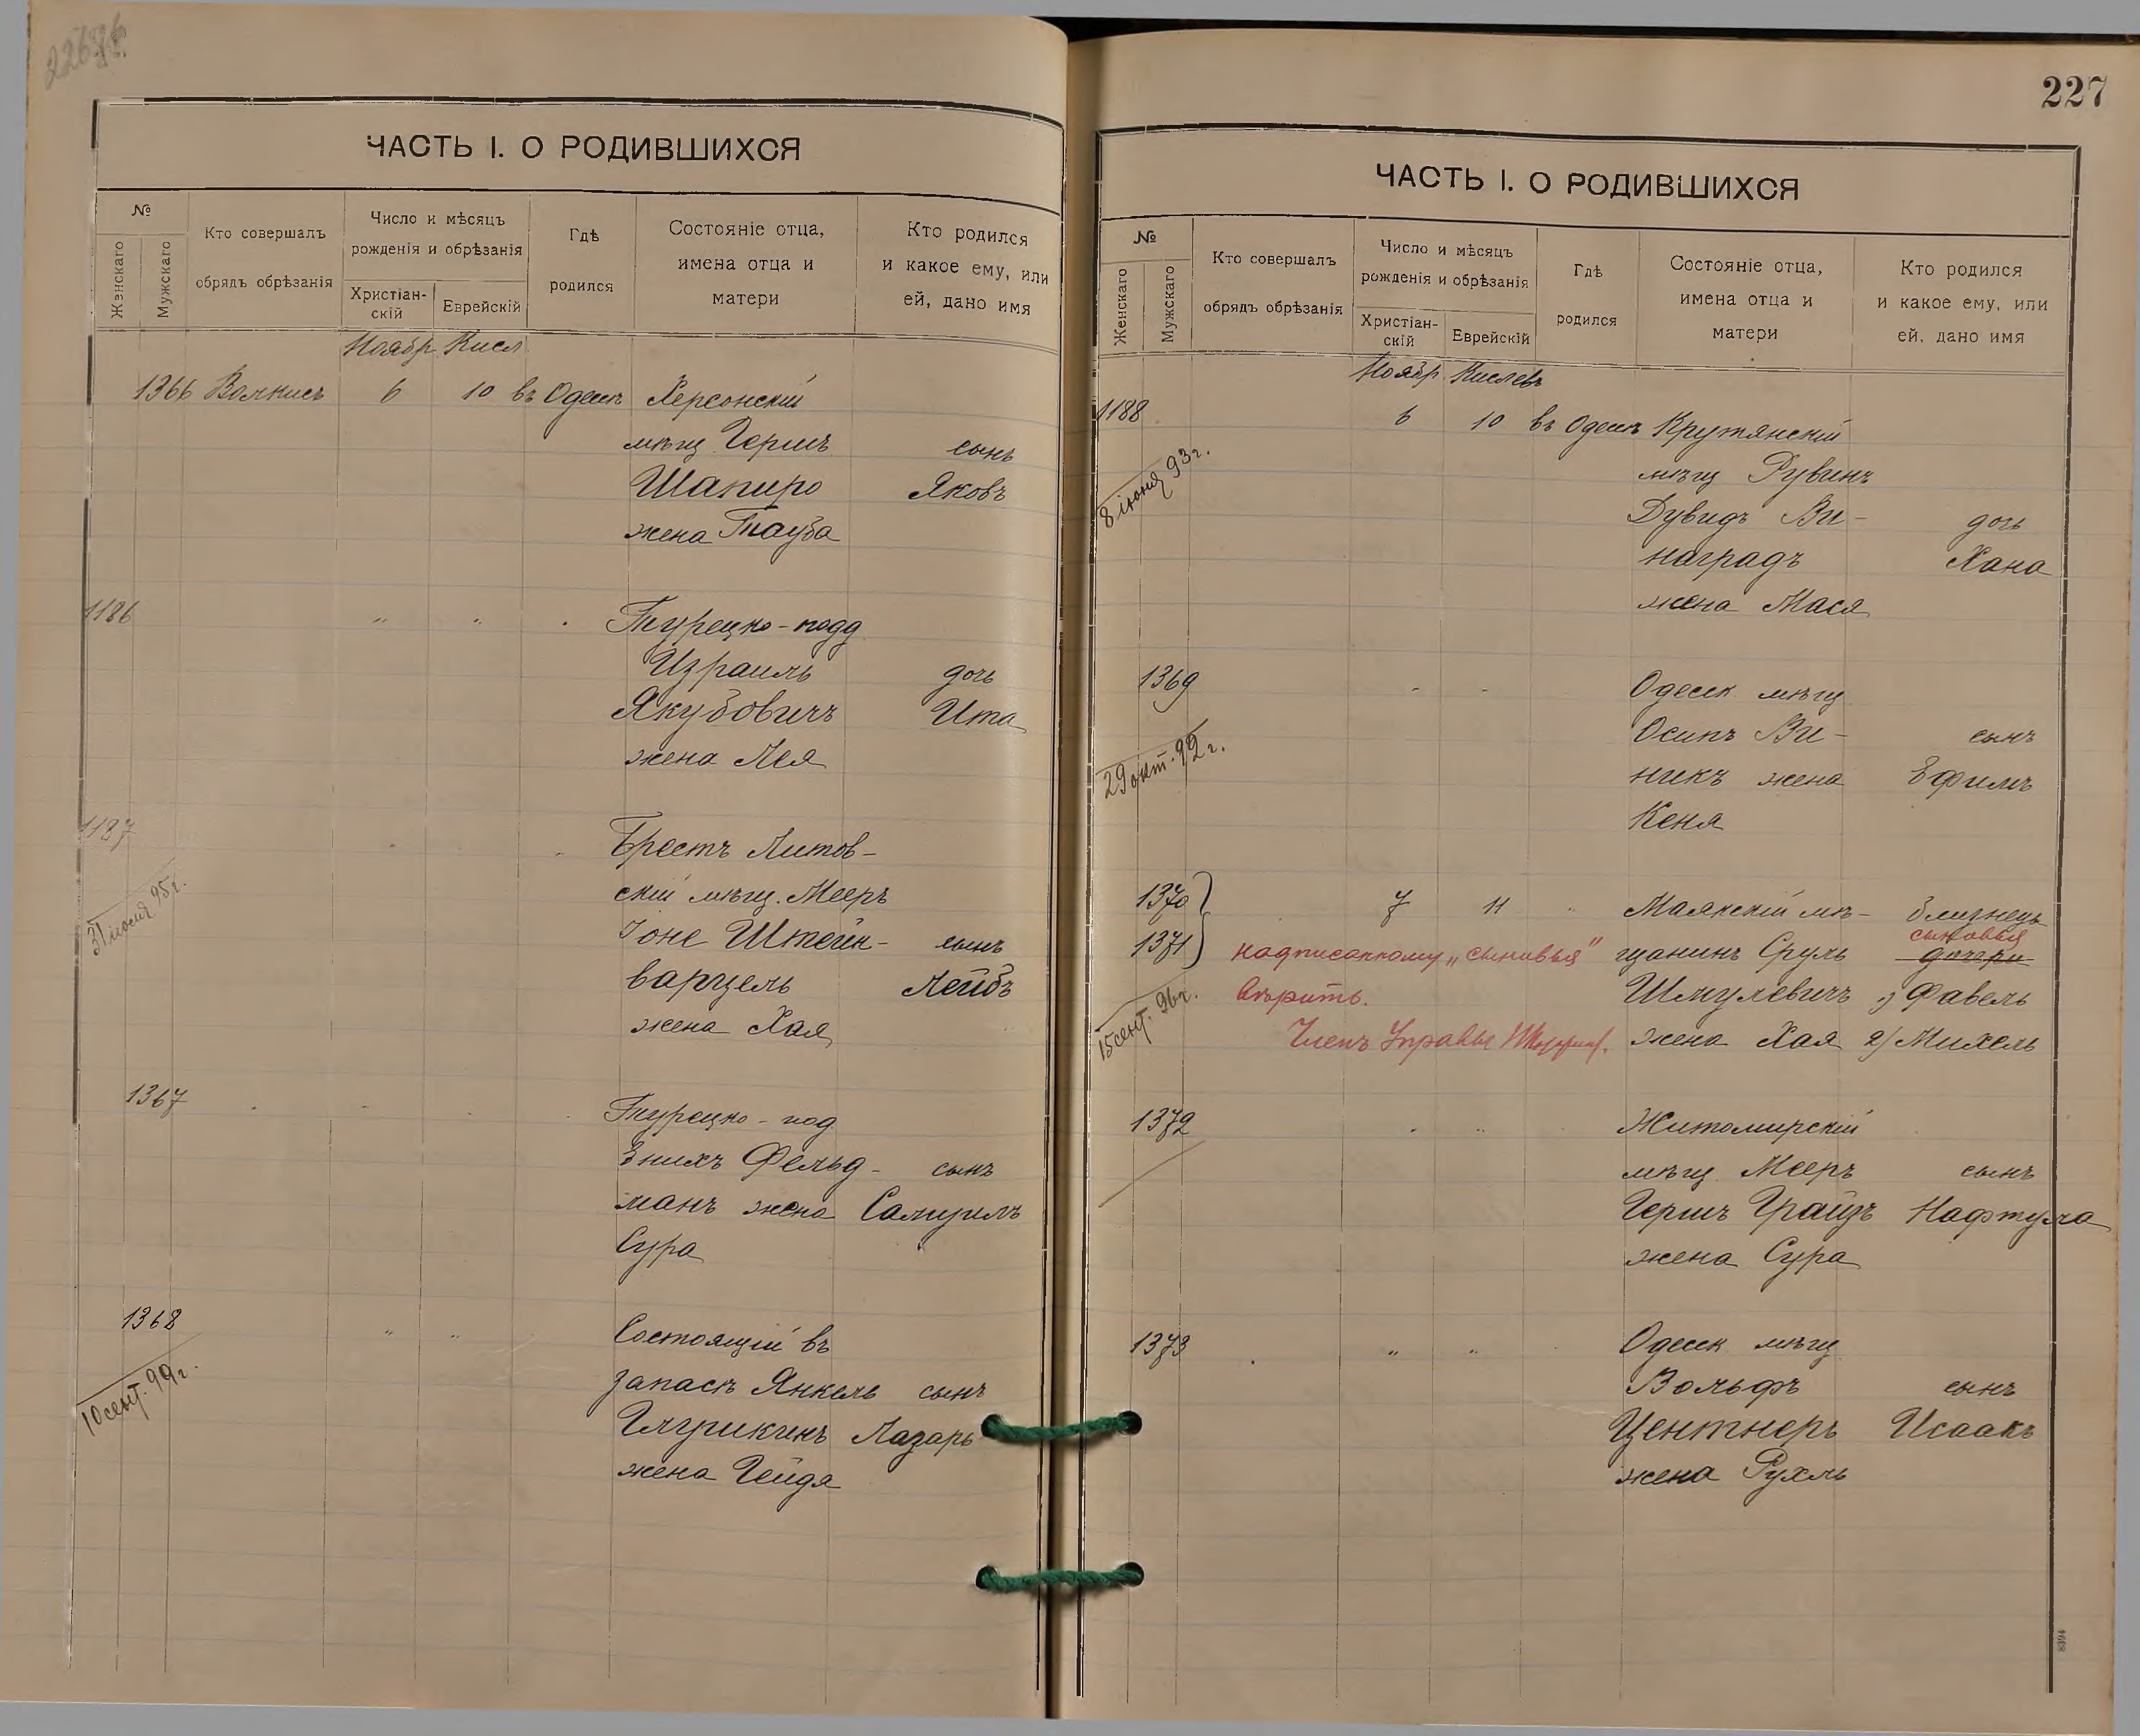 227
ЧАСТЬ I. О РОДИВШИХСЯ
№
Женскаго
Мужскаго
Кто совершалъ
обрядъ обрѣзанія
Число и мѣсяцъ
рожденія и обрѣзанія
Христіан-
скій
Еврейскій
Гдѣ
родился
Состояніе отца,
имена отца и
матери
Кто родился
и какое ему, или
ей, дано имя
Ноябр Кисл
1366 6 10 въ Одессѣ Херсонскій
мѣщ Гершъ сынъ
Шапиро Яковъ
жена Тауба
1186 " " Турецко-подд
Израиль дочь
Якубовичъ Ита
жена Лея
1187 Брестъ Литов-
скій мѣщ. Мееръ
31 июля 95г.
Іоне Штейн- сынъ
варцель Лейбъ
жена Хая
1367 Турецко-под
Энихъ Фельд- сынъ
манъ жена Самуилъ
Сура
1368 " " Состоящій въ
10 сент. 99г.
запасѣ Янкель сынъ
Лазарь
жена Гейдя
ЧАСТЬ I. О РОДИВШИХСЯ
№
Женскаго
Мужскаго
Кто совершалъ
обрядъ обрѣзанія
Число и мѣсяцъ
рожденія и обрѣзанія
Христіан-
скій
Еврейскій
Гдѣ
родился
Состояніе отца,
имена отца и
матери
Кто родился
и какое ему, или
ей, дано имя
Ноябр Кислевъ
1188 6 10 въ Одессѣ Крутянскій
8 іюня 93г.
мѣщ Рувинъ
Дувидъ Ви- дочь
наградъ Хана
жена Мася
1369 Одесск мѣщ
29 окт. 92г.
Осипъ Ви- сынъ
никъ жена Ефимъ
Кеня
1370 7 11 " Маякскій мѣ- близнецы
сыновья
1371 надписанному „сыновья" щанинъ Сруль дочери
15 сент. 96г.
вѣрить. Шмулевичъ 1) Фавель
Членъ Управы жена Хая 2) Михель
1372 Житомирскій
мѣщ Мееръ сынъ
Гершъ Грайзъ Нафтула
жена Сура
1373 " " Одесск мѣщ
Вольфъ сынъ
Центнеръ Исаакъ
жена Рухль